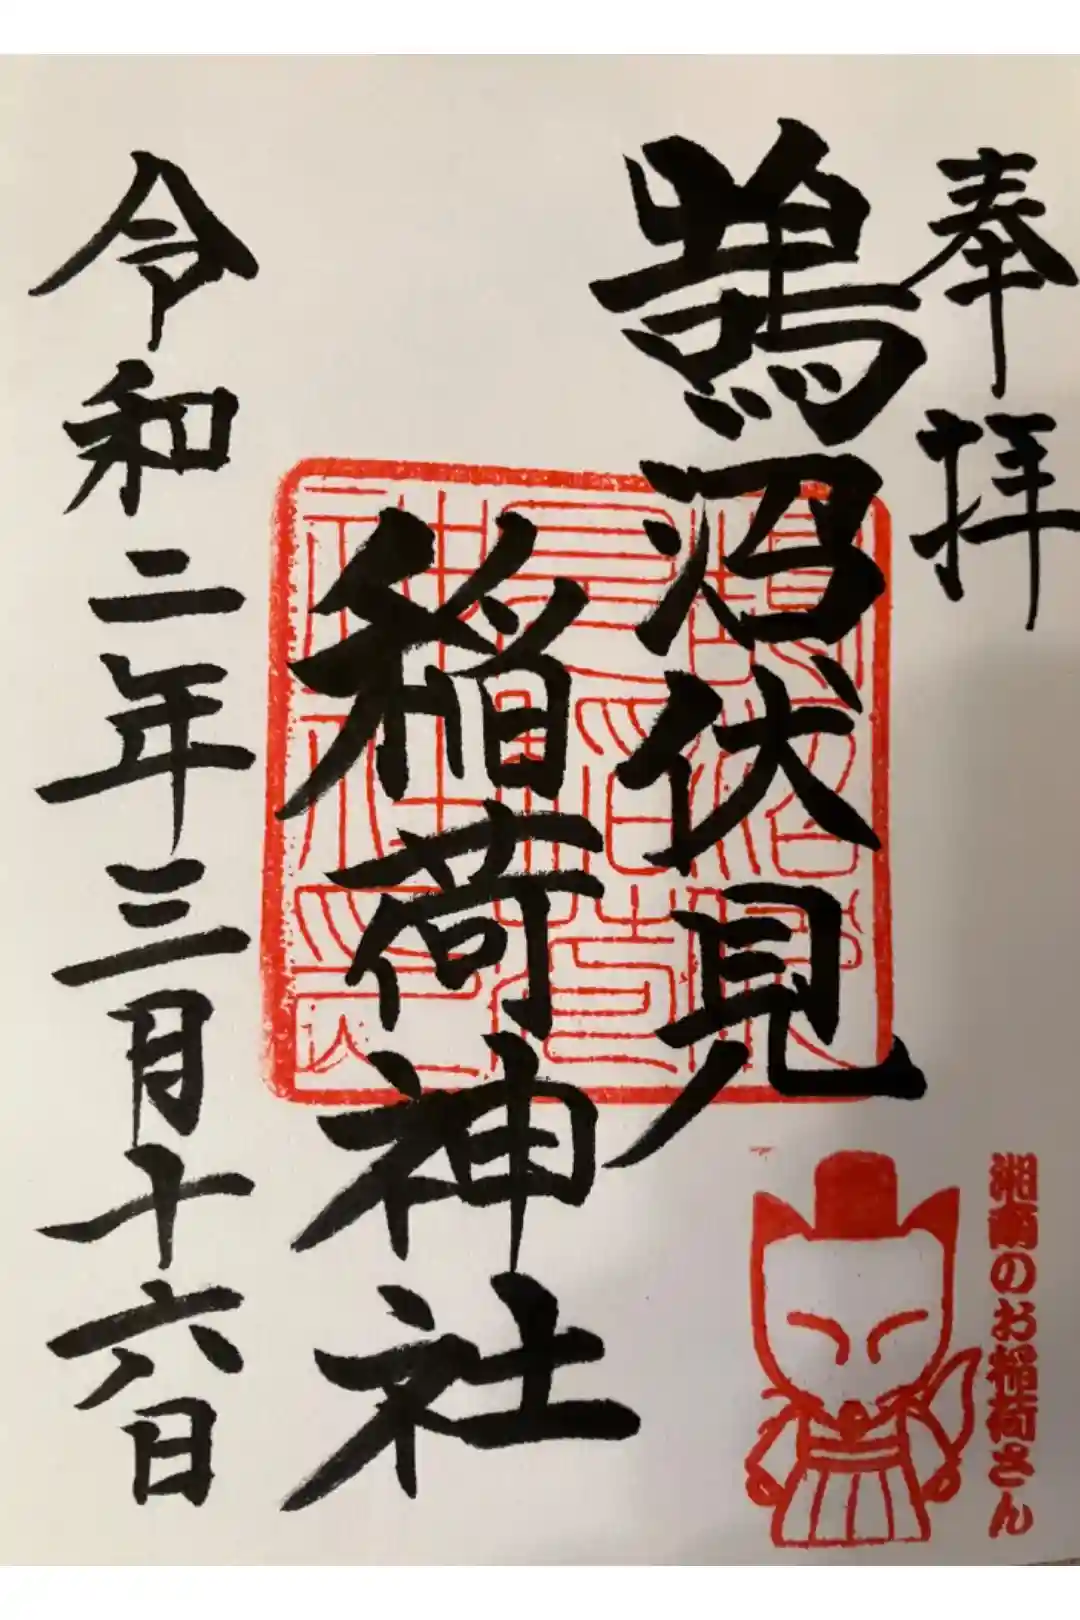 奉拝
鵠沼伏見
稲荷神社
令和二年三月十六日
湘南のお稲荷さん